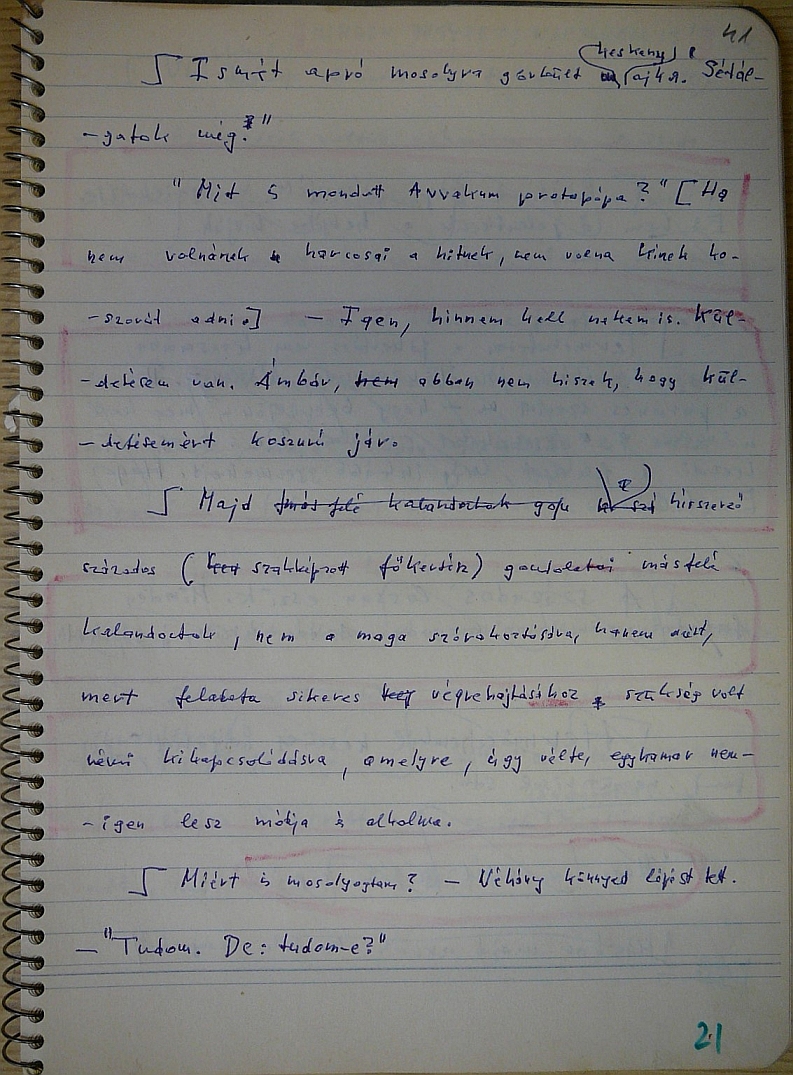 41
keskeny
Ismét apró mosolyra görbült ajka. Sétál-
-gatok még?"
"Mit is mondott Avvakum protopópa?" [Ha
nem volnának harcosai a hitnek, nem volna kinek ko-
-szorút adni.] – Igen, hinnem kell nekem is. Kül-
-detésem van. Ámbár, nem abban nem hiszek, hogy kül-
-detésemért koszorú jár.
Majd más felé kalandoztak hírszerző
százados ( szakképzett főkertész) gondolatai másfelé
kalandoztak, nem a maga szórakoztatására, hanem azért,
mert feladata sikeres végrehajtásához szükség volt
némi kikapcsolódásra, amelyre, úgy vélte, egyhamar nem-
-igen lesz módja és alkalma.
Miért is mosolyogtam? – Néhány könnyed lépést tett.
– "Tudom. De: tudom-e?"
21